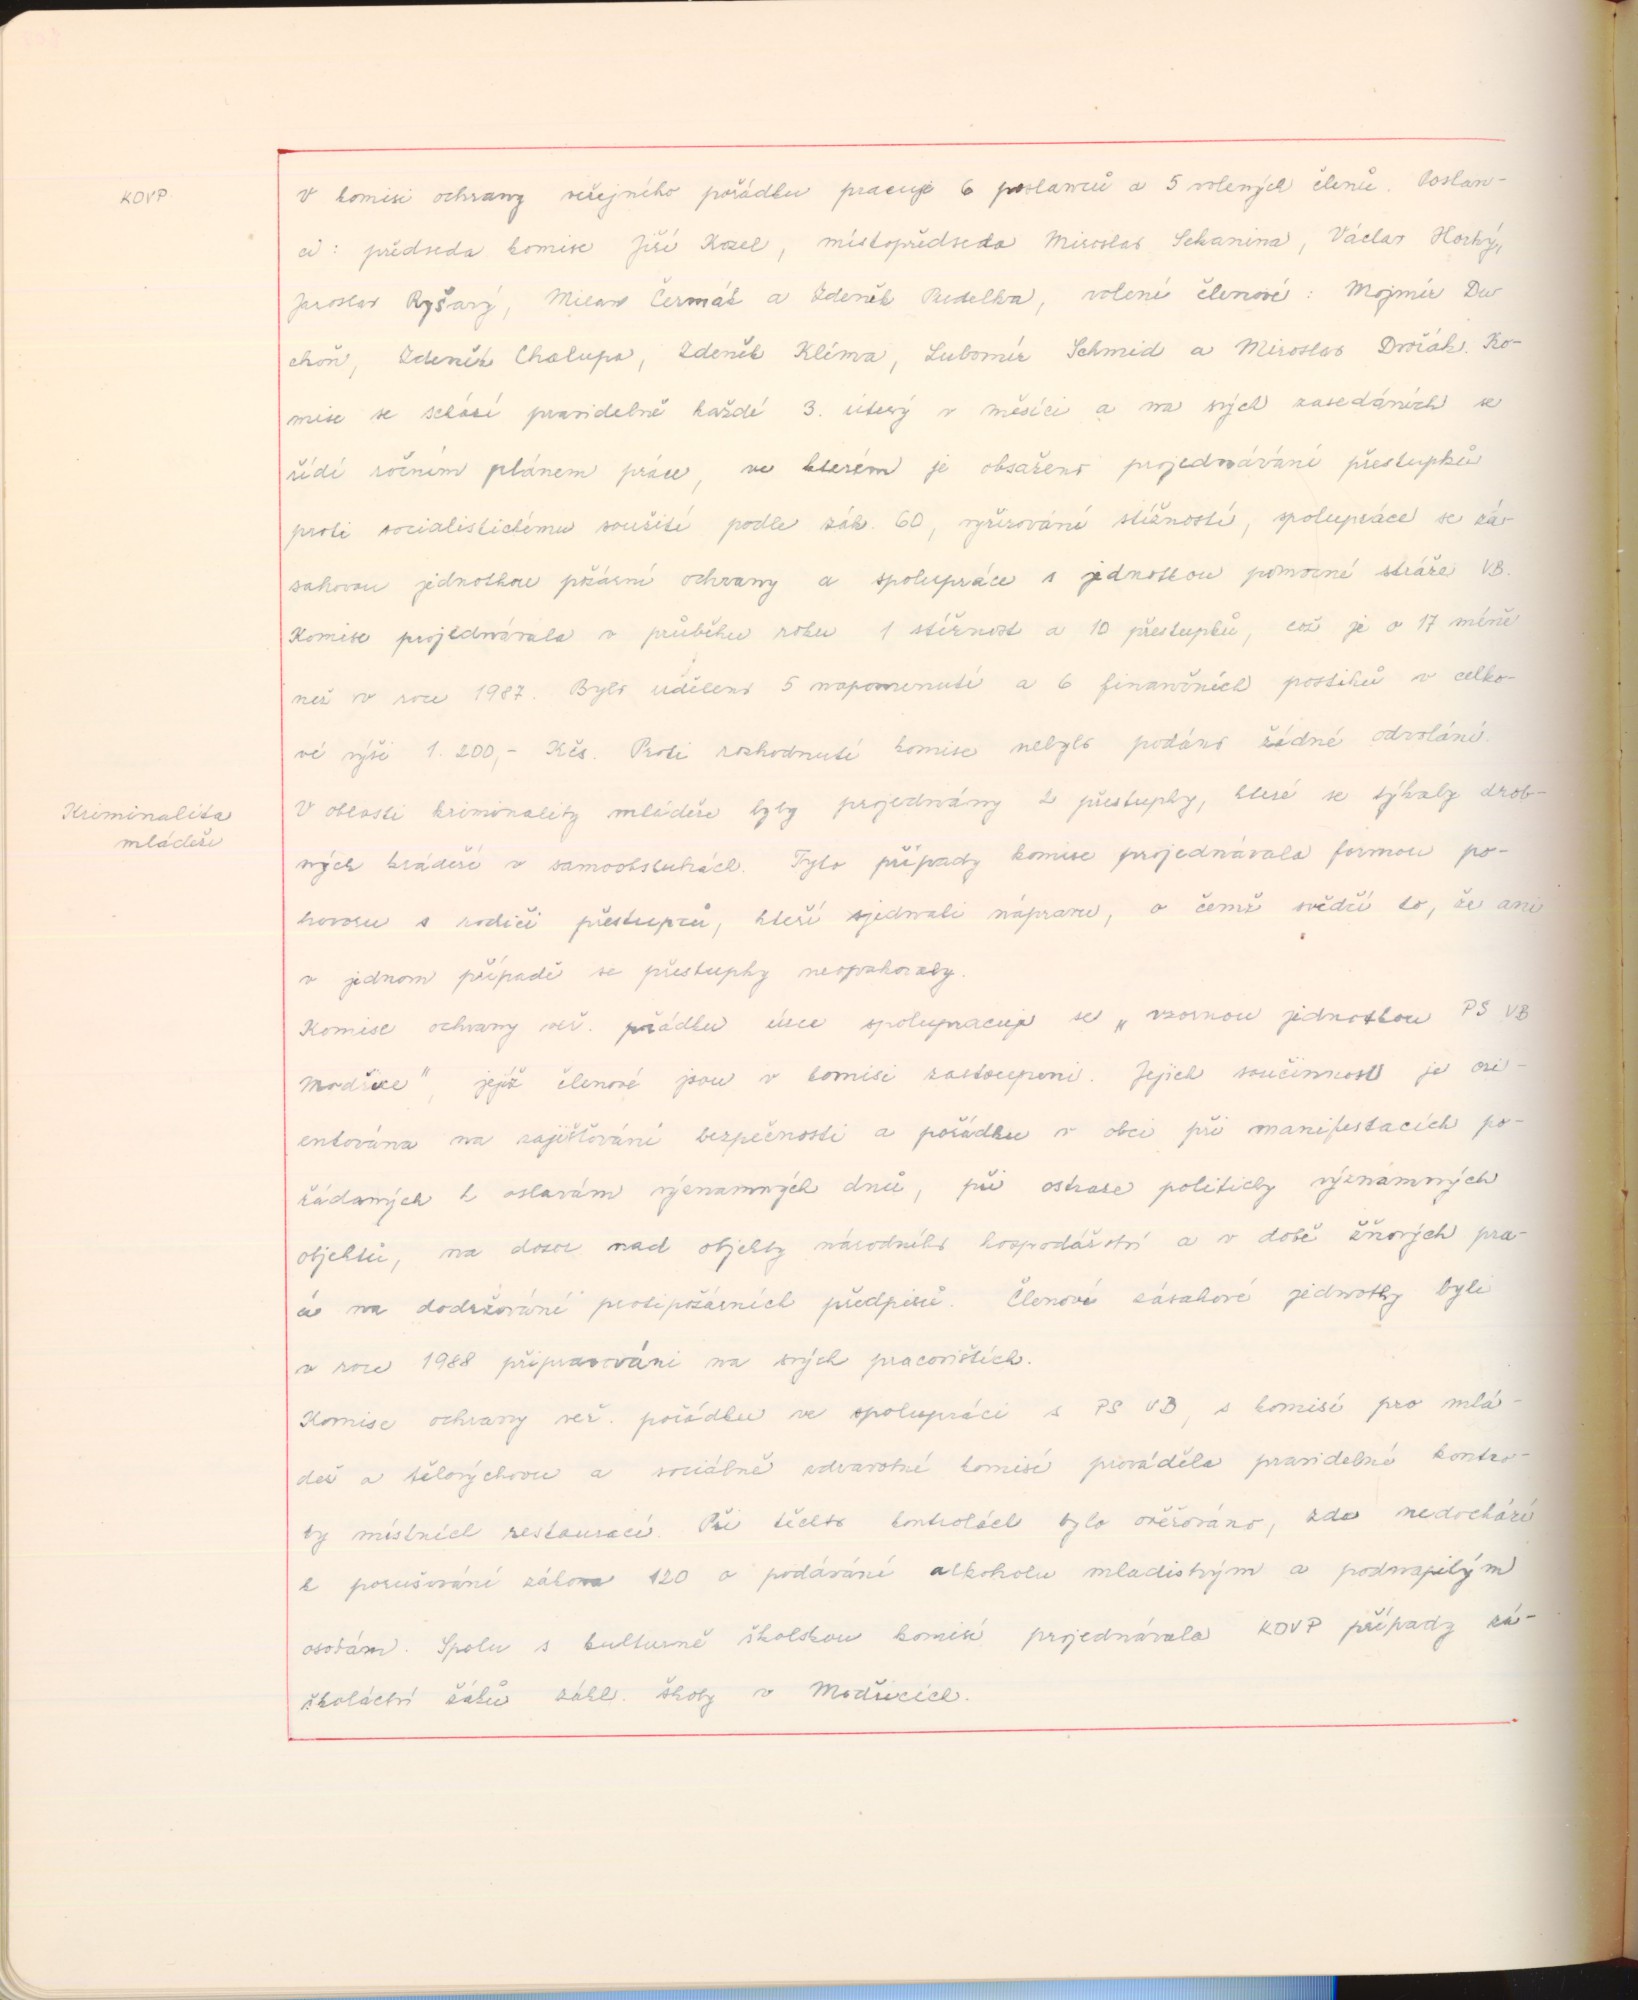 KOVP
V komisi ochrany veřejného pořádku pracuje 6 poslanců a 5 volených členů. Poslan-
ci: předseda komise Jiří Kozel, místopředseda Miroslav Sekanina, Václav Horký,
Jaroslav Ryšavý, Milan Čermák a Zdeněk Pudelka, volení členové: Mojmír Du-
choň, Zdeněk Chalupa, Zdeněk Klíma, Lubomír Schmid a Miroslav Dvořák. Ko-
mise se schází pravidelně každé 3. úterý v měsíci a na svých zasedáních se
řídí ročním plánem práce, ve kterém je obsaženo projednávání přestupků
proti socialistickému soužití podle zák. 60, vyřizování stížností, spolupráce se zá-
sahovou jednotkou požární ochrany a spolupráce s jednotkou pomocné stráže VB.
Komise projednávala v průběhu roku 1 stížnost a 10 přestupků, což je o 17 méně
než v roce 1987. Bylo uděleno 5 napomenutí a 6 finančních postihů v celko-
vé výši 1.200,- Kčs. Proti rozhodnutí komise nebylo podáno žádné odvolání.
Kriminalita
mládeže
V oblasti kriminality mládeže byly projednány 2 přestupky, které se týkaly drob-
ných krádeží v samoobsluhách. Tyto případy komise projednávala formou po-
hovoru s rodiči přestupců, kteří sjednali nápravu, o čemž svědčí to, že ani
v jednom případě se přestupky neopakovaly.
Komise ochrany veř. pořádku úzce spolupracuje se „vzornou jednotkou PS VB
Modřice", jejíž členové jsou v komisi zastoupeni. Jejich součinnost je ori-
entována na zajišťování bezpečnosti a pořádku v obci při manifestacích po-
řádaných k oslavám významných dnů, při ostraze politicky významných
objektů, na dozor nad objekty národního hospodářství a v době žňových pra-
cí na dodržování protipožárních předpisů. Členové zásahové jednotky byli
v roce 1988 připravováni na svých pracovištích.
Komise ochrany veř. pořádku ve spolupráci s PS VB, s komisí pro mlá-
dež a tělovýchovu a sociálně zdravotní komisí prováděla pravidelné kontro-
ly místních restaurací. Při těchto kontrolách bylo ověřováno, zda nedochází
k porušování zákona 120 o podávání alkoholu mladistvým a podnapilým
osobám. Spolu s kulturně školskou komisí projednávala KOVP případy zá-
školáctví žáků zákl. školy v Modřicích.